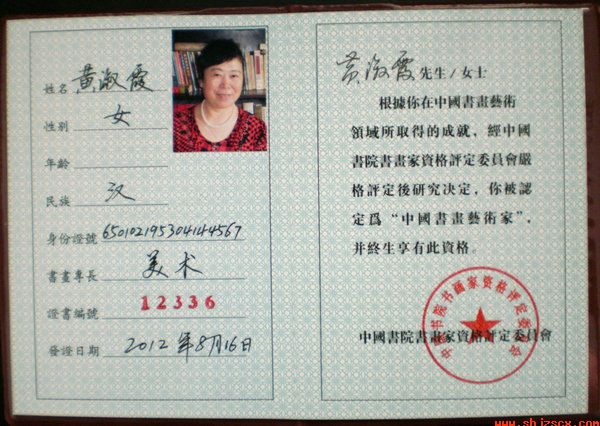 姓名 黄淑霞
性别 女
年齡
民族 汉
身份證號 650102195304144567
書畫專長 美术
證書編號 12336
發證日期 2012年8月16日
黄淑霞 先生/女士
根據你在中國書畫藝術
領域所取得的成就，經中國
書院書畫家資格評定委員會嚴
格評定後研究决定，你被認
定爲“中國書畫藝術家”，
并終生享有此資格。
中国书院书画家资格评定委员会
中國書院書畫家資格評定委員會
www.shizscx.com